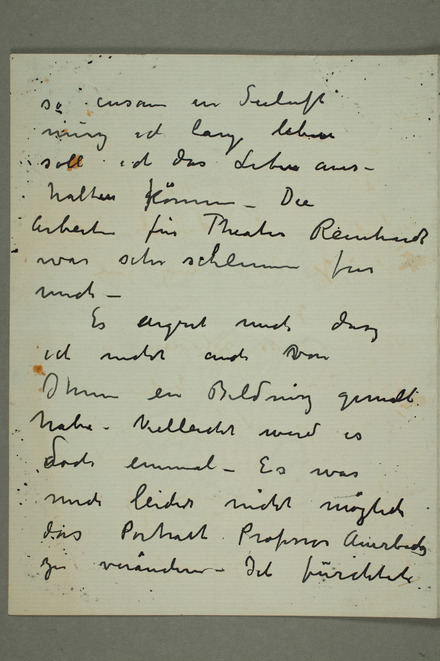 so einsam in Seeluft
muss ich lang leben
soll ich das Leben aus-
halten können — Die
Arbeiten für Theater Reinhardt
war sehr schlimm für
mich —
Es ärgert mich dass
ich nicht auch von
Ihnen ein Bildniss gemalt
habe. Vielleicht wird es
doch einmal — Es war
mich leider nicht möglich
das Portrait Professor Auerbachs
zu verändern — Ich fürchtete